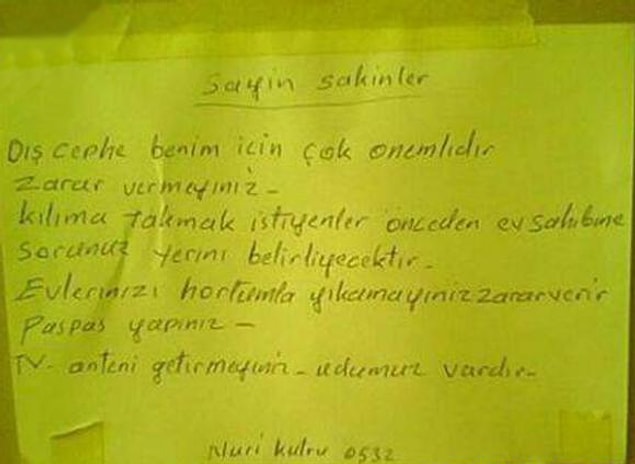 Sayin sakinler
Dış cephe benim için çok önemlidir
Zarar vermeyiniz -
Kılıma takmak istiyenler önceden ev sahibine
Sorunuz yerini belirliyecektir -
Evlerinizi hortumla yıkamayınız zarar verir
Paspas yapınız -
TV - anteni getirmeyiniz - udumuz vardır -
Nuri 0532